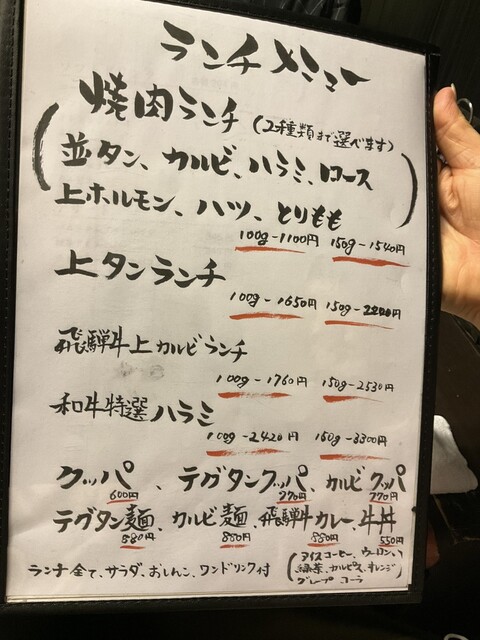 ランチメニュー
焼肉ランチ (2種類まで選べます)
(並タン、カルビ、ハラミ、ロース
上ホルモン、ハツ、とりもも)
100g-1100円 150g-1540円
上タンランチ
100g-1650円 150g-2200円
飛騨牛上カルビランチ
100g-1760円 150g-2530円
和牛特選ハラミ
100g-2420円 150g-3300円
クッパ、テグタンクッパ、カルビクッパ
600円 770円 770円
テグタン麺、カルビ麺、飛騨牛カレー、牛丼
880円 880円 880円 550円
ランチ全て、サラダ、おしんこ、ワンドリンク付
(アイスコーヒー、ウーロン、
緑茶、カルピス、オレンジ
グレープ コーラ)